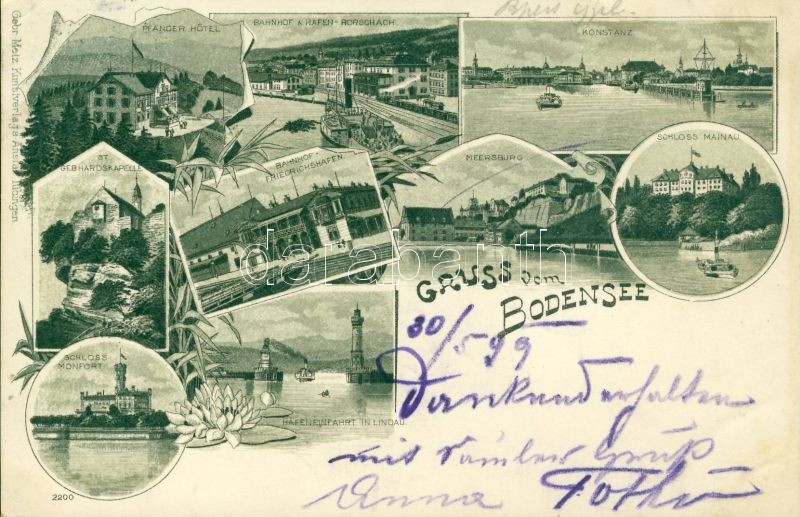 PFÄNDER HÔTEL
BAHNHOF & HAFEN-RORSCHACH.
KONSTANZ
ST. GEBHARDSKAPELLE
BAHNHOF FRIEDRICHSHAFEN.
MEERSBURG
SCHLOSS MAINAU
SCHLOSS MONFORT
HAFENEINFAHRT IN LINDAU.
GRUSS vom BODENSEE
darabanth
30/5 99
Dankend erhalten
mit Gruß
Anna
2200
Gebr. Metz, Kunstverlags Anstalt, Tübingen